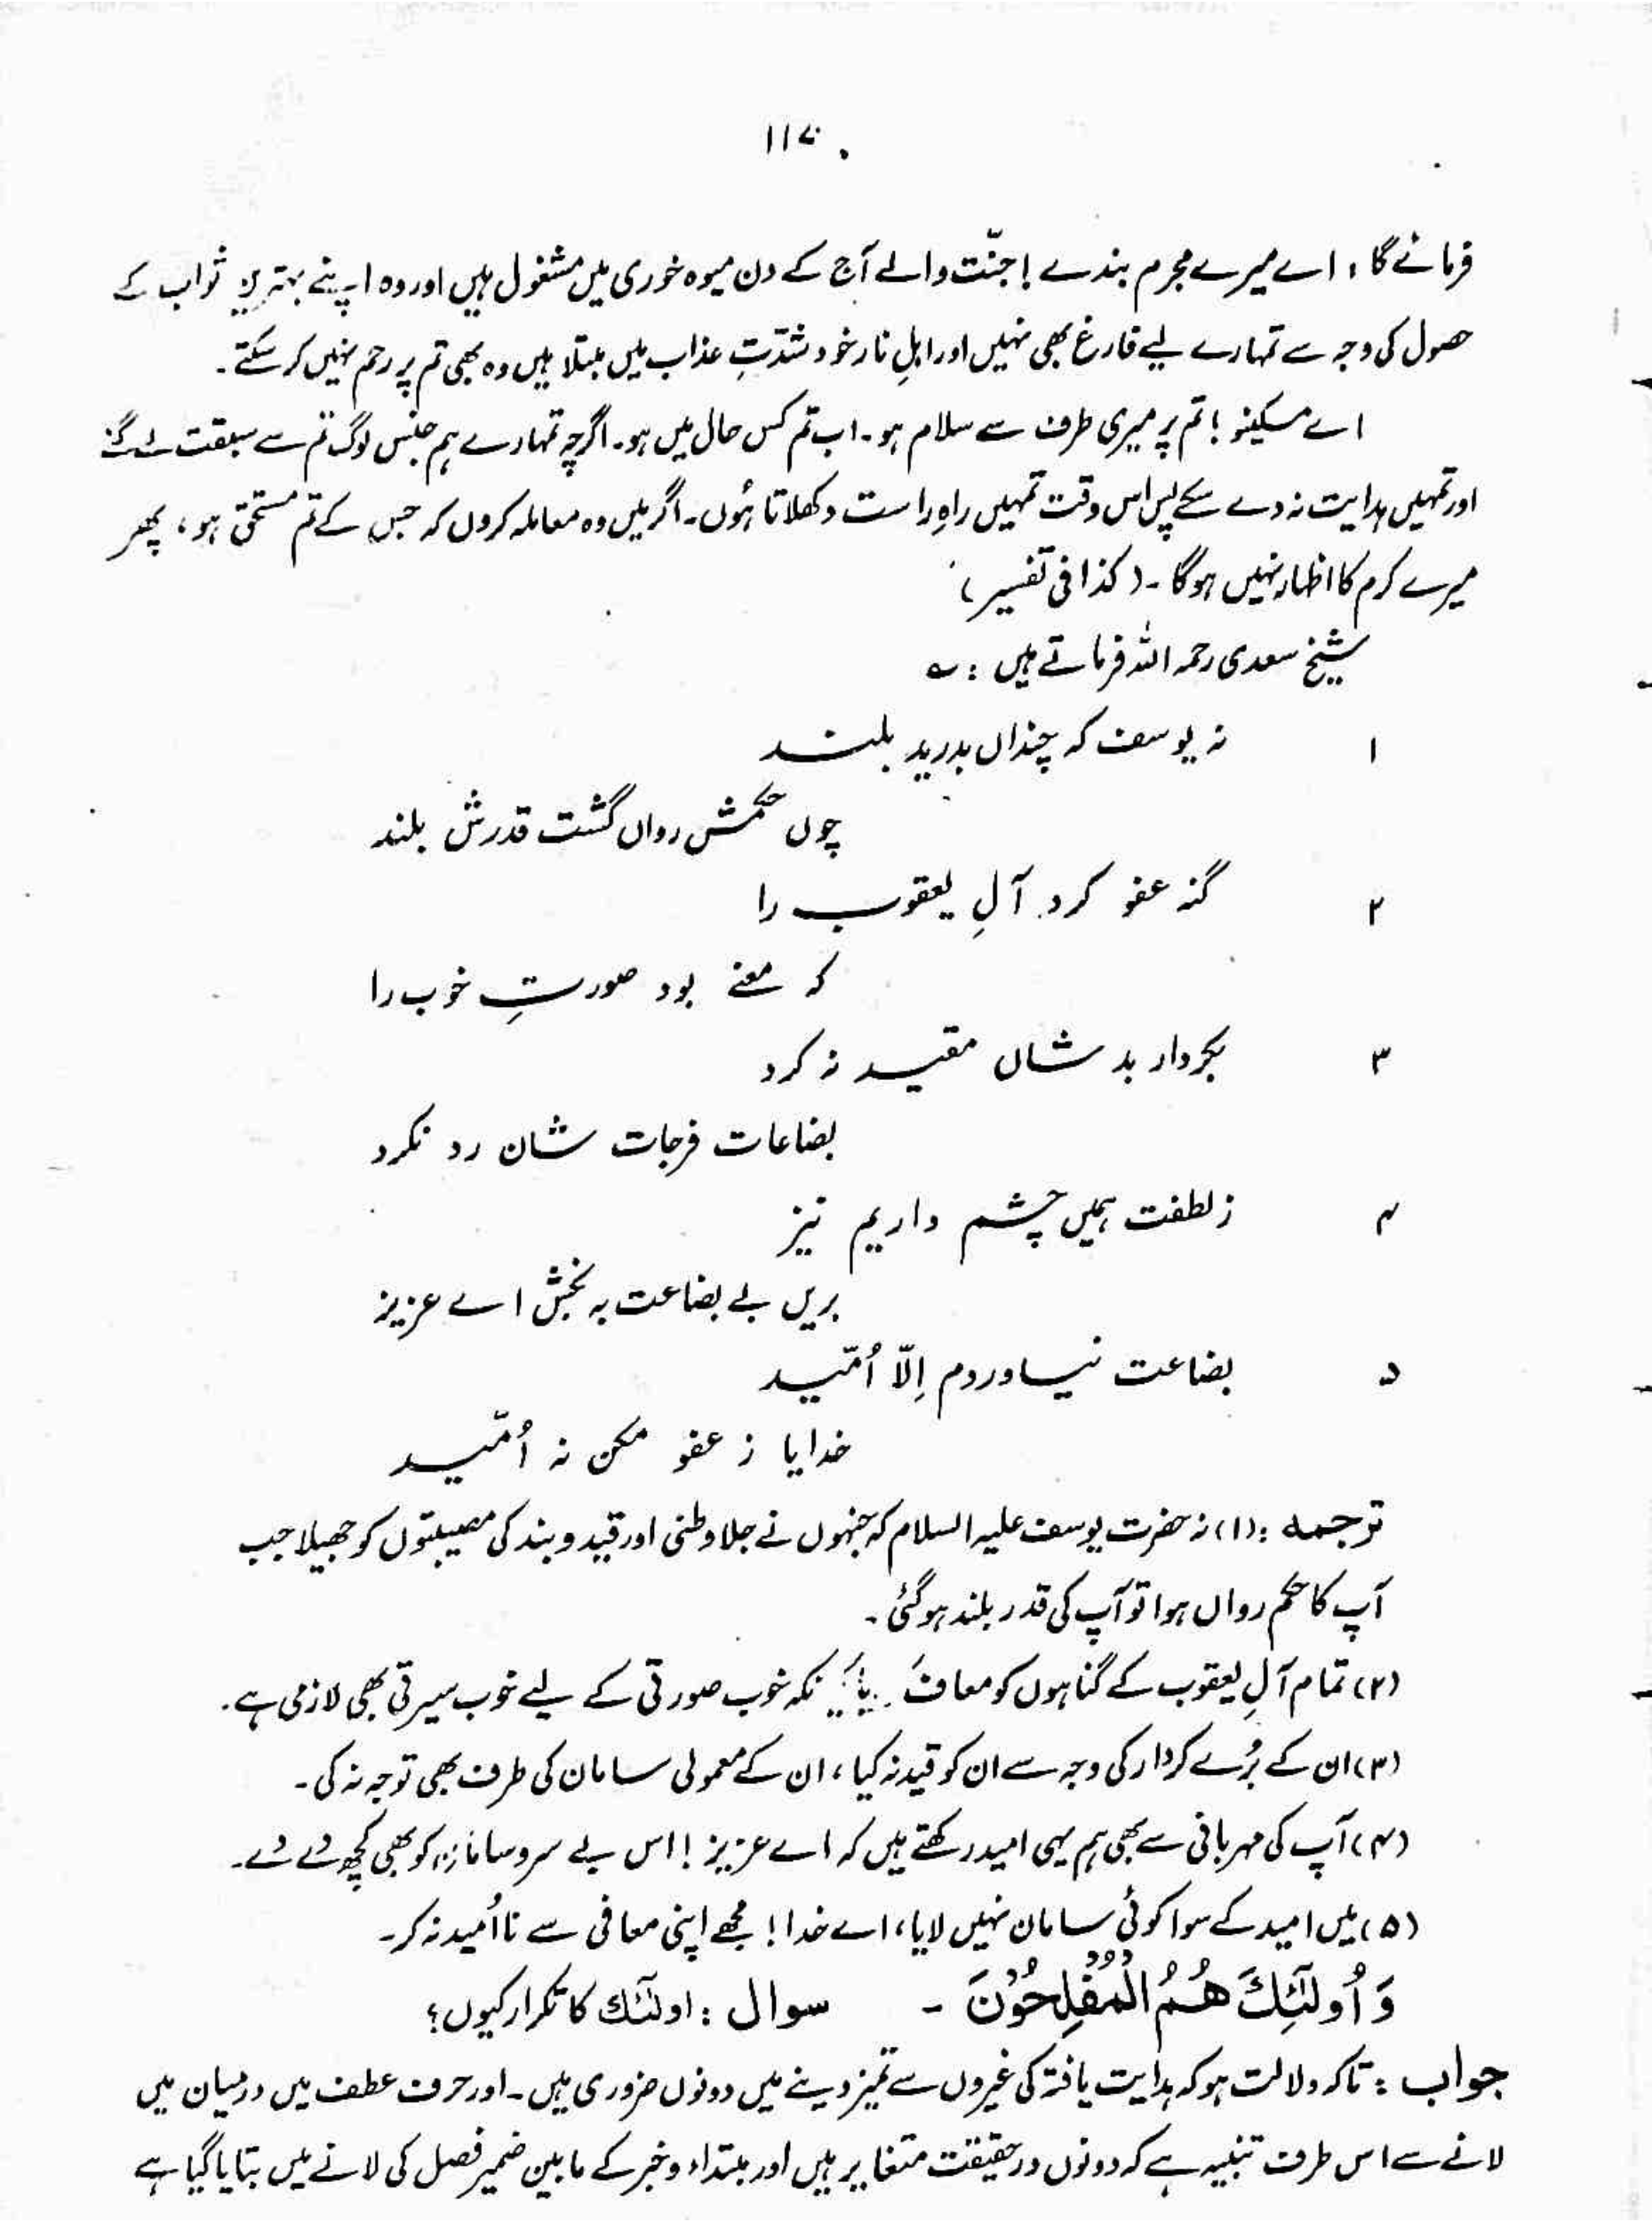 ۱۱۷
فرمائے گا، اے میرے مجرم بندے! جنّت والے آج کے دن میوہ خوری میں مشغول ہیں اور وہ اپنے بہترین ثواب کے
حصول کی وجہ سے تمہارے لیے فارغ بھی نہیں اور اہلِ نار خود شدّتِ عذاب میں مبتلا ہیں وہ بھی تم پر رحم نہیں کر سکتے۔
اے مسکینو! تم پر میری طرف سے سلام ہو۔ اب تم کس حال میں ہو۔ اگرچہ تمہارے ہم جنس لوگ تم سے سبقت لے گئے
اور تمہیں ہدایت نہ دے سکے پس اس وقت تمہیں راہِ راست دکھلاتا ہُوں۔ اگر میں وہ معاملہ کروں کہ جس کے تم مستحق ہو، پھر
میرے کرم کا اظہار نہیں ہوگا۔ (کذا فی تفسیر)
شیخ سعدی رحمہ اللہ فرماتے ہیں : ؎
۱ نہ یوسف کہ چنداں بدرید بلند
چوں حکمش رواں گشت قدرش بلند
۲ گنہ عفو کرد آلِ یعقوب را
کہ معنے بود صورتِ خوب را
۳ بکردار بد شاں مقید نہ کرد
بضاعات فرجات شان رد نکرد
۴ ز لطفت ہمیں چشم داریم نیز
بریں بے بضاعت بہ بخش اے عزیز
۵ بضاعت نیاوردم اِلّا اُمّید
خدایا ز عفو مکن نہ اُمّید
ترجمہ : (۱) نہ حضرت یوسف علیہ السلام کہ جنہوں نے جلا وطنی اور قید و بند کی مصیبتوں کو جھیلا جب
آپ کا حکم رواں ہوا تو آپ کی قدر بلند ہوگئی۔
(۲) تمام آلِ یعقوب کے گناہوں کو معاف نکہ خوب صورتی کے لیے خوب سیرتی بھی لازمی ہے۔
(۳) ان کے بُرے کردار کی وجہ سے ان کو قید نہ کیا، ان کے معمولی سامان کی طرف بھی توجہ نہ کی۔
(۴) آپ کی مہربانی سے بھی ہم یہی امید رکھتے ہیں کہ اے عزیز! اس بے سروسامان کو بھی کچھ دے دے۔
(۵) میں امید کے سوا کوئی سامان نہیں لایا، اے خدا! مجھے اپنی معافی سے نا اُمید نہ کر۔
وَ أُولٰٓئِكَ هُمُ الْمُفْلِحُوْنَ ۔ سوال : اولٰٓئک کا تکرار کیوں؟
جواب : تاکہ دلالت ہو کہ ہدایت یافتہ کی غیروں سے تمیز دینے میں دونوں ضروری ہیں۔ اور حرف عطف میں درمیان میں
لانے سے اس طرف تنبیہ ہے کہ دونوں درحقیقت متغایر ہیں اور مبتداء و خبر کے مابین ضمیر فصل کی لانے میں بتایا گیا ہے